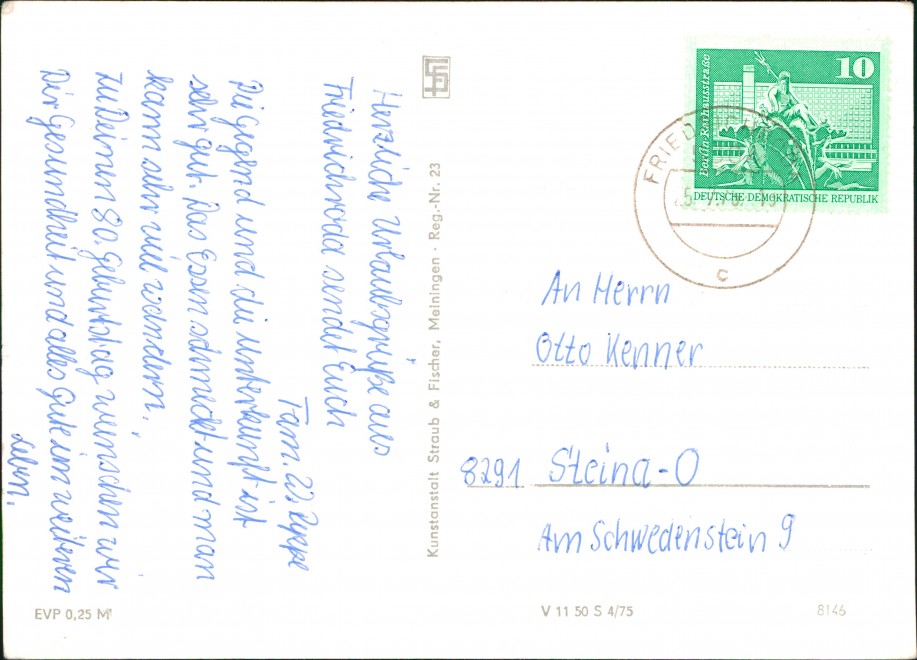 Herzliche Urlaubsgrüße aus
Friedrichroda sendet Euch
Fam.
Die Gegend und die Unterkunft ist
sehr gut. Das Essen schmeckt und man
kann sehr viel wandern.
Zu Deinen 80. Geburtstag wünschen wir
Dir Gesundheit und alles Gute im weiteren
Leben.
Kunstanstalt Straub & Fischer, Meiningen · Reg.-Nr. 23
EVP 0,25 M
10
Berlin·Rathausstraße
DEUTSCHE DEMOKRATISCHE REPUBLIK
c
An Herrn
Otto Kenner
8291 Steina-O
Am Schwedenstein 9
V 11 50 S 4/75
8146